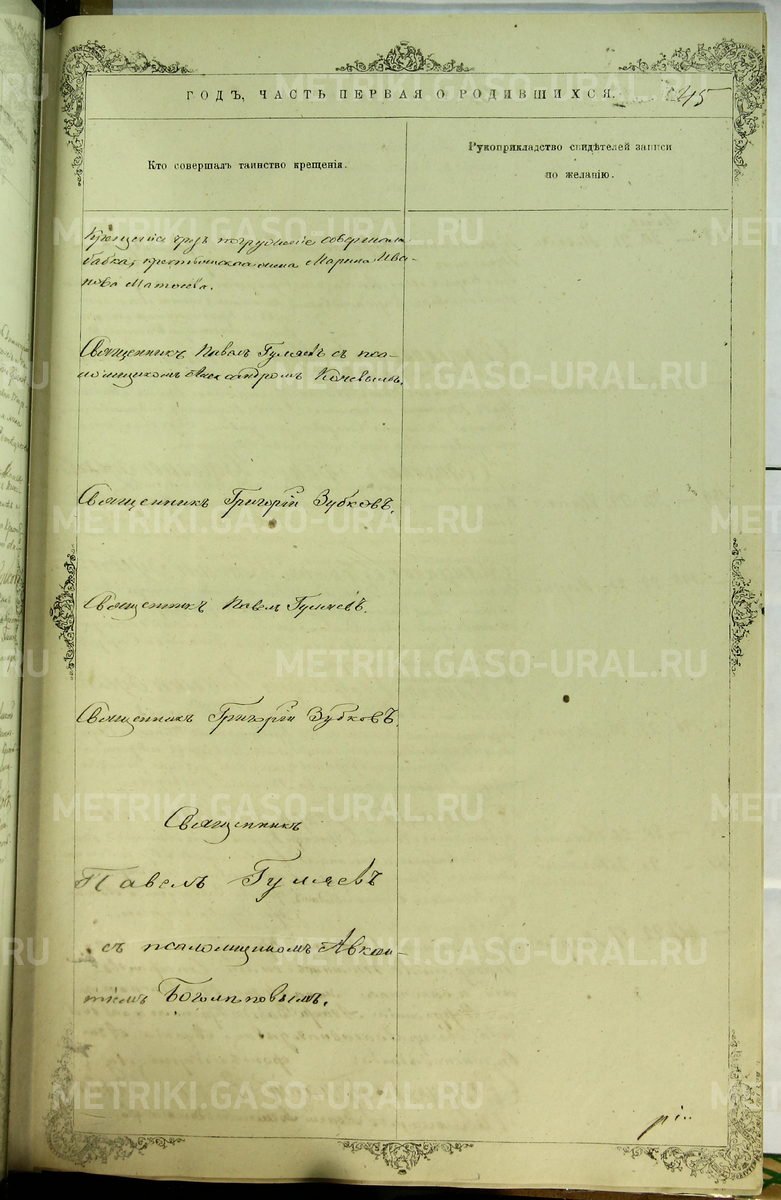 ГОДЪ, ЧАСТЬ ПЕРВАЯ О РОДИВШИХСЯ. 245
Кто совершалъ таинство крещенія.
Рукоприкладство свидѣтелей записи
по желанію.
Крещеніе чрезъ погруженіе
бабка, крестьянская жена Марина Ива-
нова
Священникъ Павелъ Гуляевъ съ пса-
ломщикомъ Александромъ
Священникъ Григорій Зубковъ.
Священникъ Павелъ Гуляевъ.
Священникъ Григорій Зубковъ.
Священникъ
Павелъ Гуляевъ
съ псаломщикомъ Авксен-
тіемъ Боголеповымъ.
METRIKI.GASO-URAL.RU